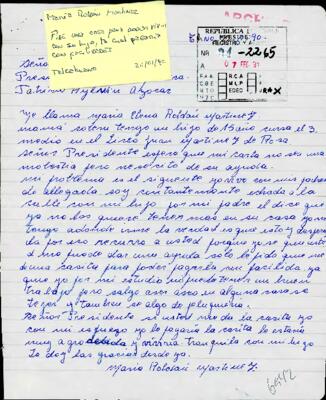 María Roldán Martínez
Pide una casa para poder vivir
con su hijo, la cual pagaría
con facilidades
20/01/92
ARCH
REPUBLICA
PRESIDE
REGISTRO Y A
NRO. 91-2265
A 07 FEB 91
RCA
MLP
EDEC
Señor
Presi
Patricio Aylwin Azócar
Me llamo maria Elena Roldán Martínez
mamá soltera tengo un hijo de 15 año cursa el 3
medio en el Liceo Juan Martínez de Rosa
Señor Presidente espero que mi carta no sea una
molestia pero necesito de su ayuda
mi problema es el siguiente yo vivo con mis padres
de allegada, soy constantemente echada a la
calle con mi hijo por mi padre el dice que
ya no los quiere tener mas en su casa yo no
tengo adonde irme la verdad es que estoy desespe
rada por eso recurro a usted porque yo se que usted
si me puede dar una ayuda solo le pido que me
de una casita para poder pagarla con facilidad ya
que yo por mi estudio no puedo tener un buen
trabajo pero salgo hacer aseo en alguna casa so
tejer y tambien se algo de peluqueria.
Señor Presidente si usted me da la casita yo
con mi esfuerzo yo le pagaría la casita le estaria
muy agradecida y viviria tranquila con mi hijo
Le doy las gracias desde ya.
Maria Roldán Martínez.